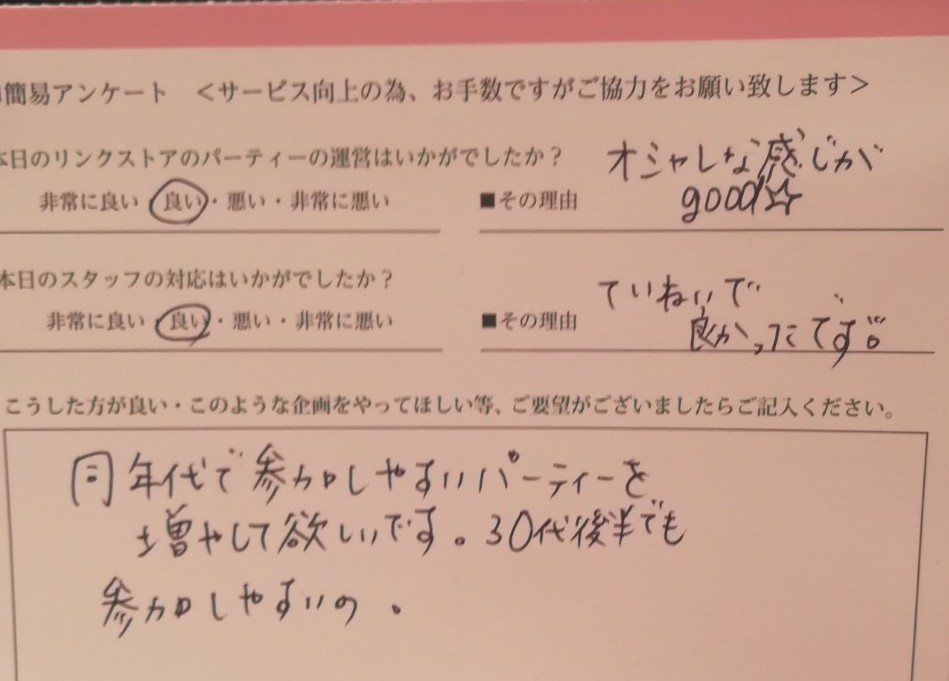 簡易アンケート ＜サービス向上の為、お手数ですがご協力をお願い致します＞
本日のリンクストアのパーティーの運営はいかがでしたか？
オシャレな感じが
非常に良い・良い・悪い・非常に悪い ■その理由
good☆
本日のスタッフの対応はいかがでしたか？
ていねいで
非常に良い・良い・悪い・非常に悪い ■その理由
良かったです。
こうした方が良い・このような企画をやってほしい等、ご要望がございましたらご記入ください。
同年代で参加しやすいパーティーを
増やして欲しいです。30代後半でも
参加しやすいの。